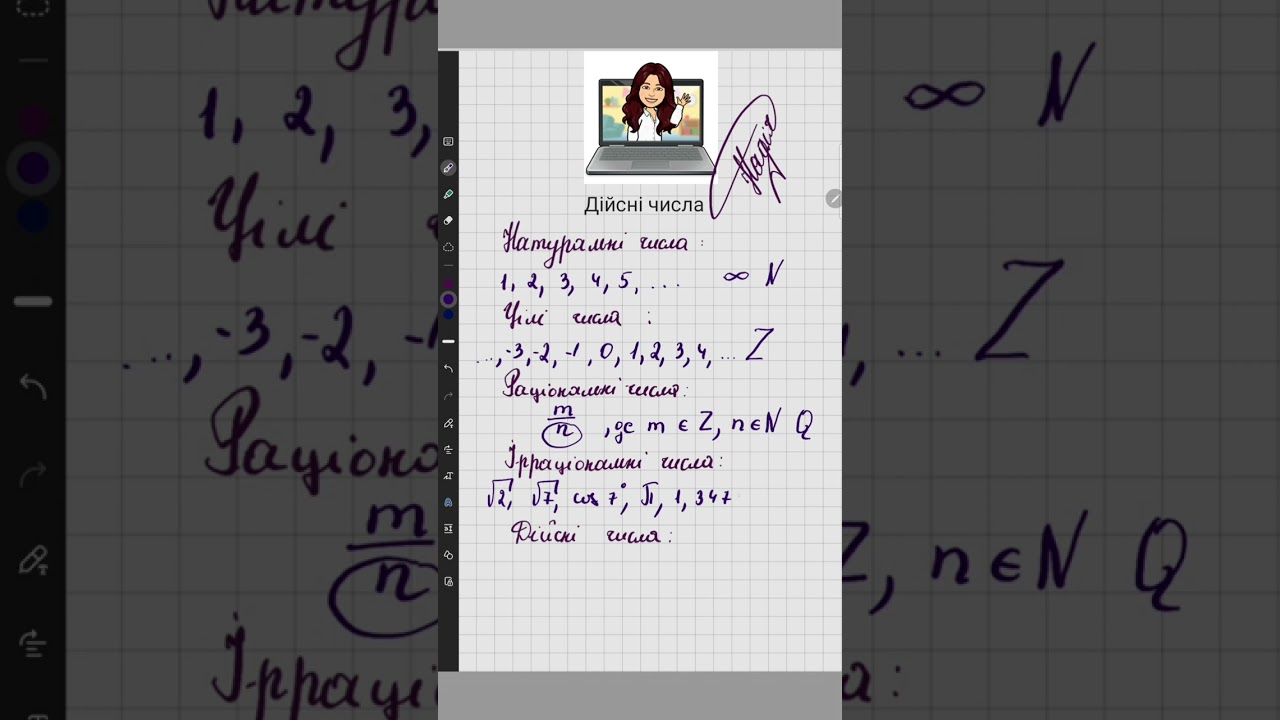 Надія
Дійсні числа
Натуральні числа:
1, 2, 3, 4, 5, ... ∞ N
Цілі числа:
..., -3, -2, -1, 0, 1, 2, 3, 4, ... Z
Раціональні числа:
m/n, де m ∈ Z, n ∈ N Q
Ірраціональні числа:
√2, √7, cos 7°, π, 1, 347
Дійсні числа: